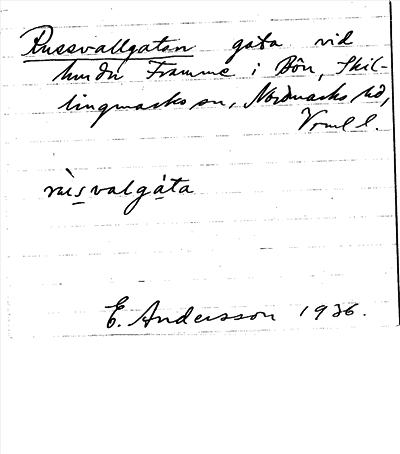 Russvallgatan gata vid
hmdn Framme i Bön, Skil-
lingmarks sn, Nordmarks hd,
Vrml l.
rùs̲valgá̲ta
E. Andersson 1936.